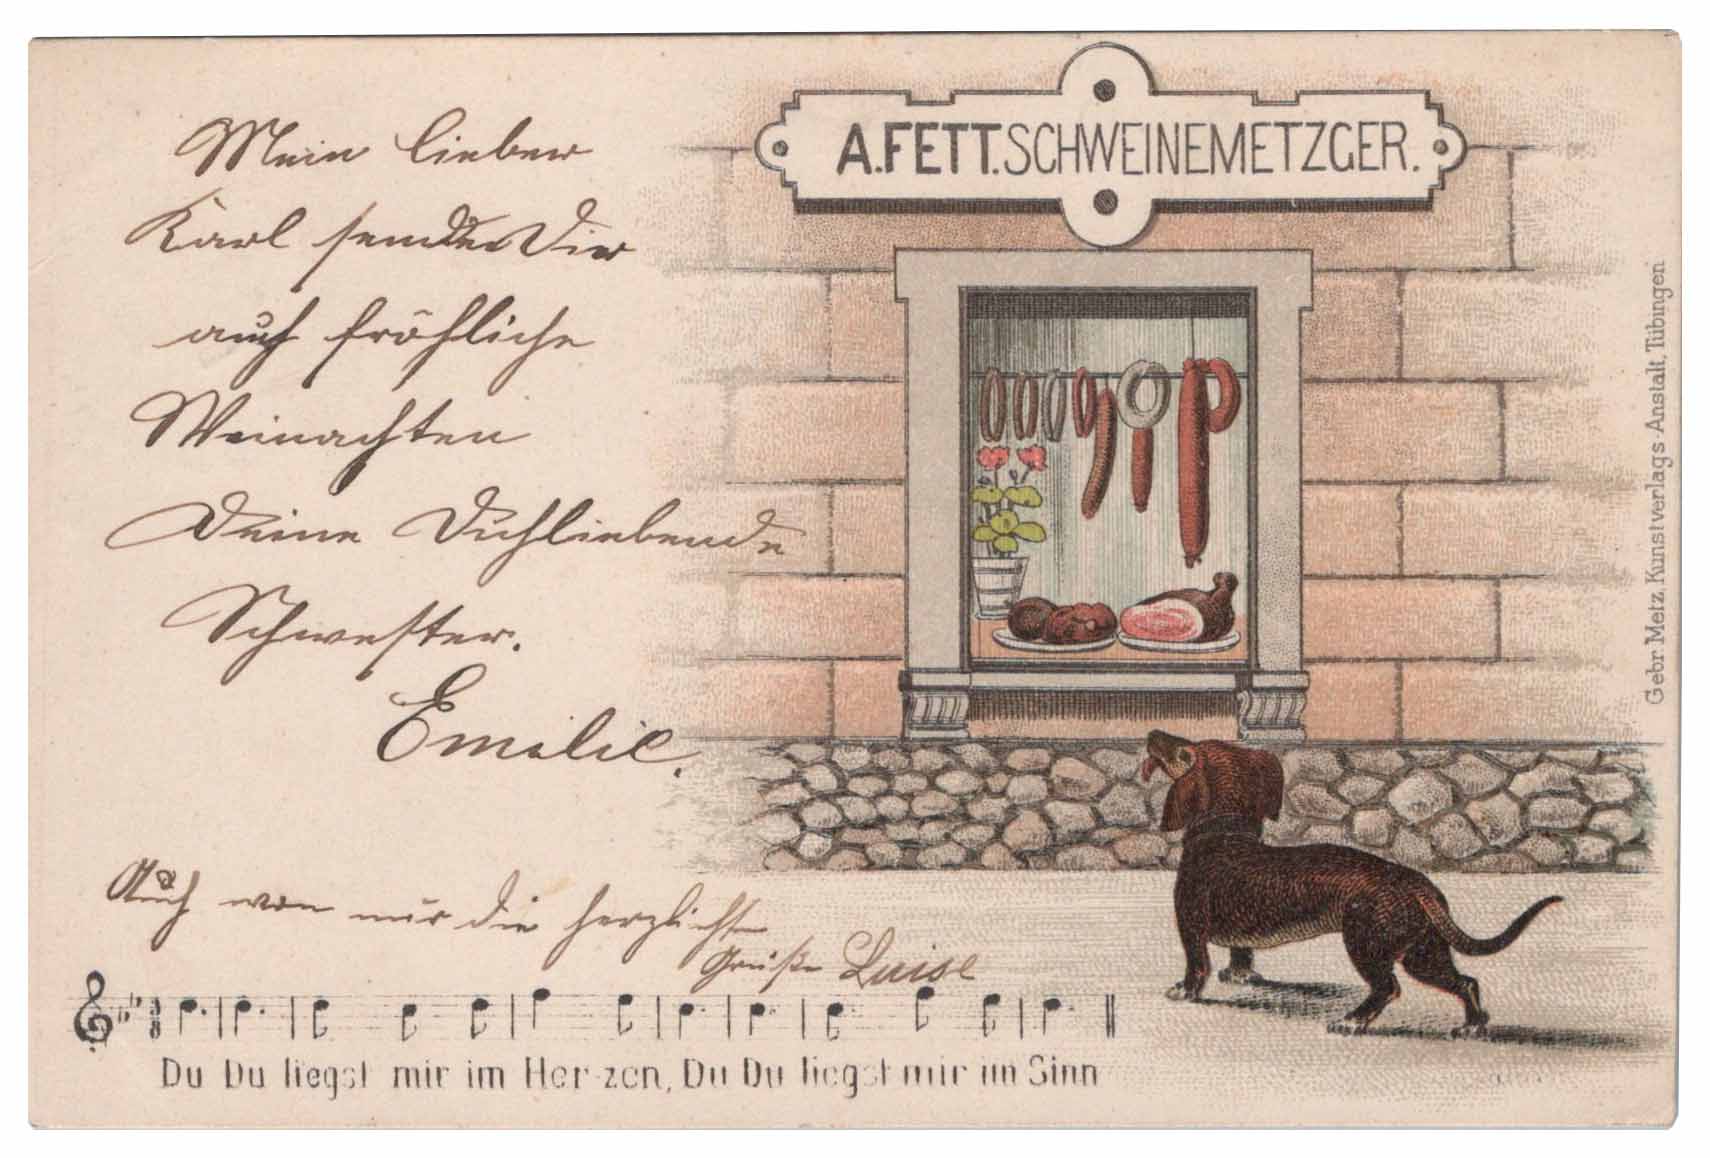 A. FETT. SCHWEINEMETZGER.
Mein lieber
Karl sende Dir
auch fröhliche
Weinachten
Deine Dichliebende
Schwester.
Emilie.
Auch von mir die herzlichste
Grüße Luise
Du Du liegst mir im Her-zen, Du Du liegst mir im Sinn
Gebr. Metz, Kunstverlags-Anstalt, Tübingen